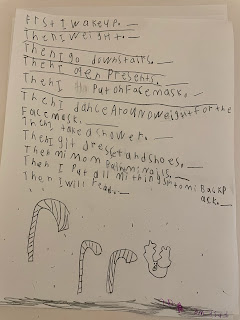 First I wakeup.
Then I weight.
Then I go downstairs.
Then I open Presents.
Then I Put on Facemask.
Then I dance Around weight for the
Facemask.
Then I take a shower.
Then I git dresst and shoes.
Then mi mom
Then I Put all mi things into mi Backp
ack.
Then I will read.